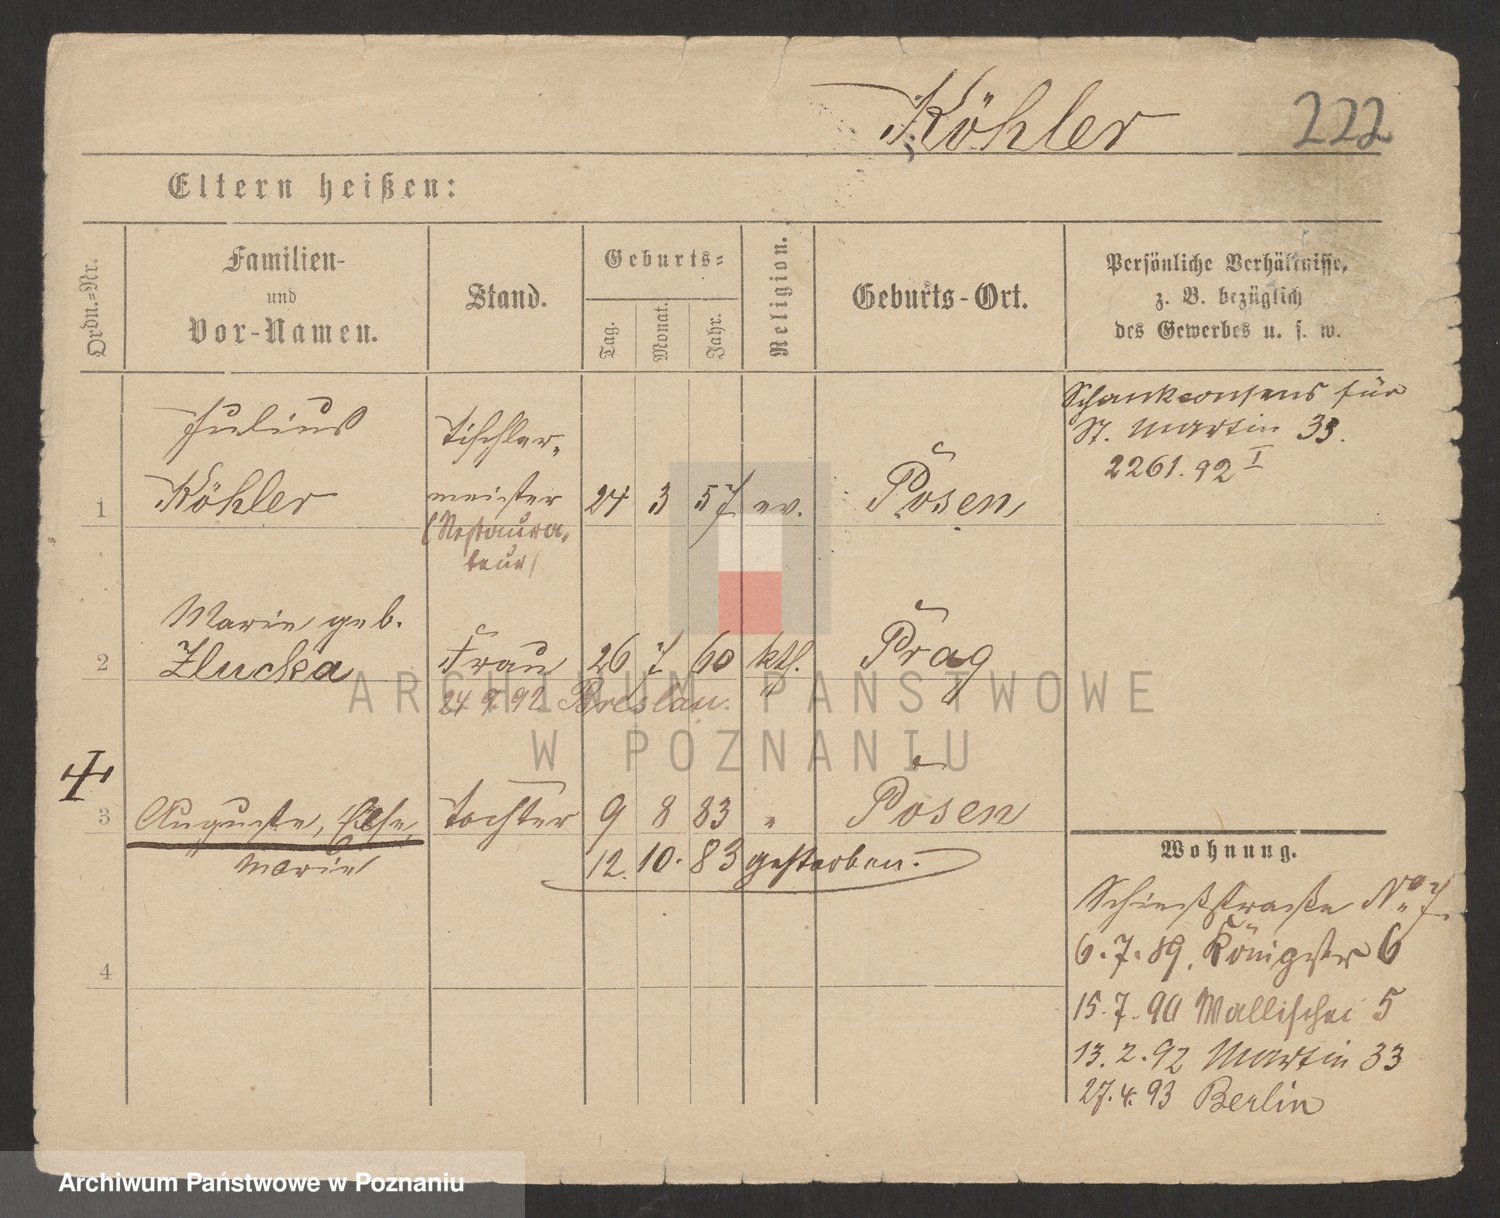 Köhler 222
Eltern heißen:
Ordn.-Nr.
Familien-
und
Vor-Namen.
Stand.
Geburts-
Tag.
Monat.
Jahr.
Religion.
Geburts-Ort.
Persönliche Verhältnisse,
z. B. bezüglich
des Gewerbes u. s. w.
Julius
Köhler
1
Tischler-
meister
(Restaura-
teur)
24 3 57 ev. Posen
Schankconsens für
St. Martin 33.
2261.92 I
Marie geb.
2 Zlucka Frau 26 7 60 kth. Prag
24 9 92 Breslau.
3 Auguste, Else, Tochter 9 8 83 " Posen
Marie
12. 10. 83 gestorben.
4
Wohnung.
Schießstraße No 7.
6.7.89. Königstr 6
15.7.90 Wallischei 5
13.2.92 Martin 33
27.4.93 Berlin
ARCHIWUM PAŃSTWOWE
W POZNANIU
Archiwum Państwowe w Poznaniu